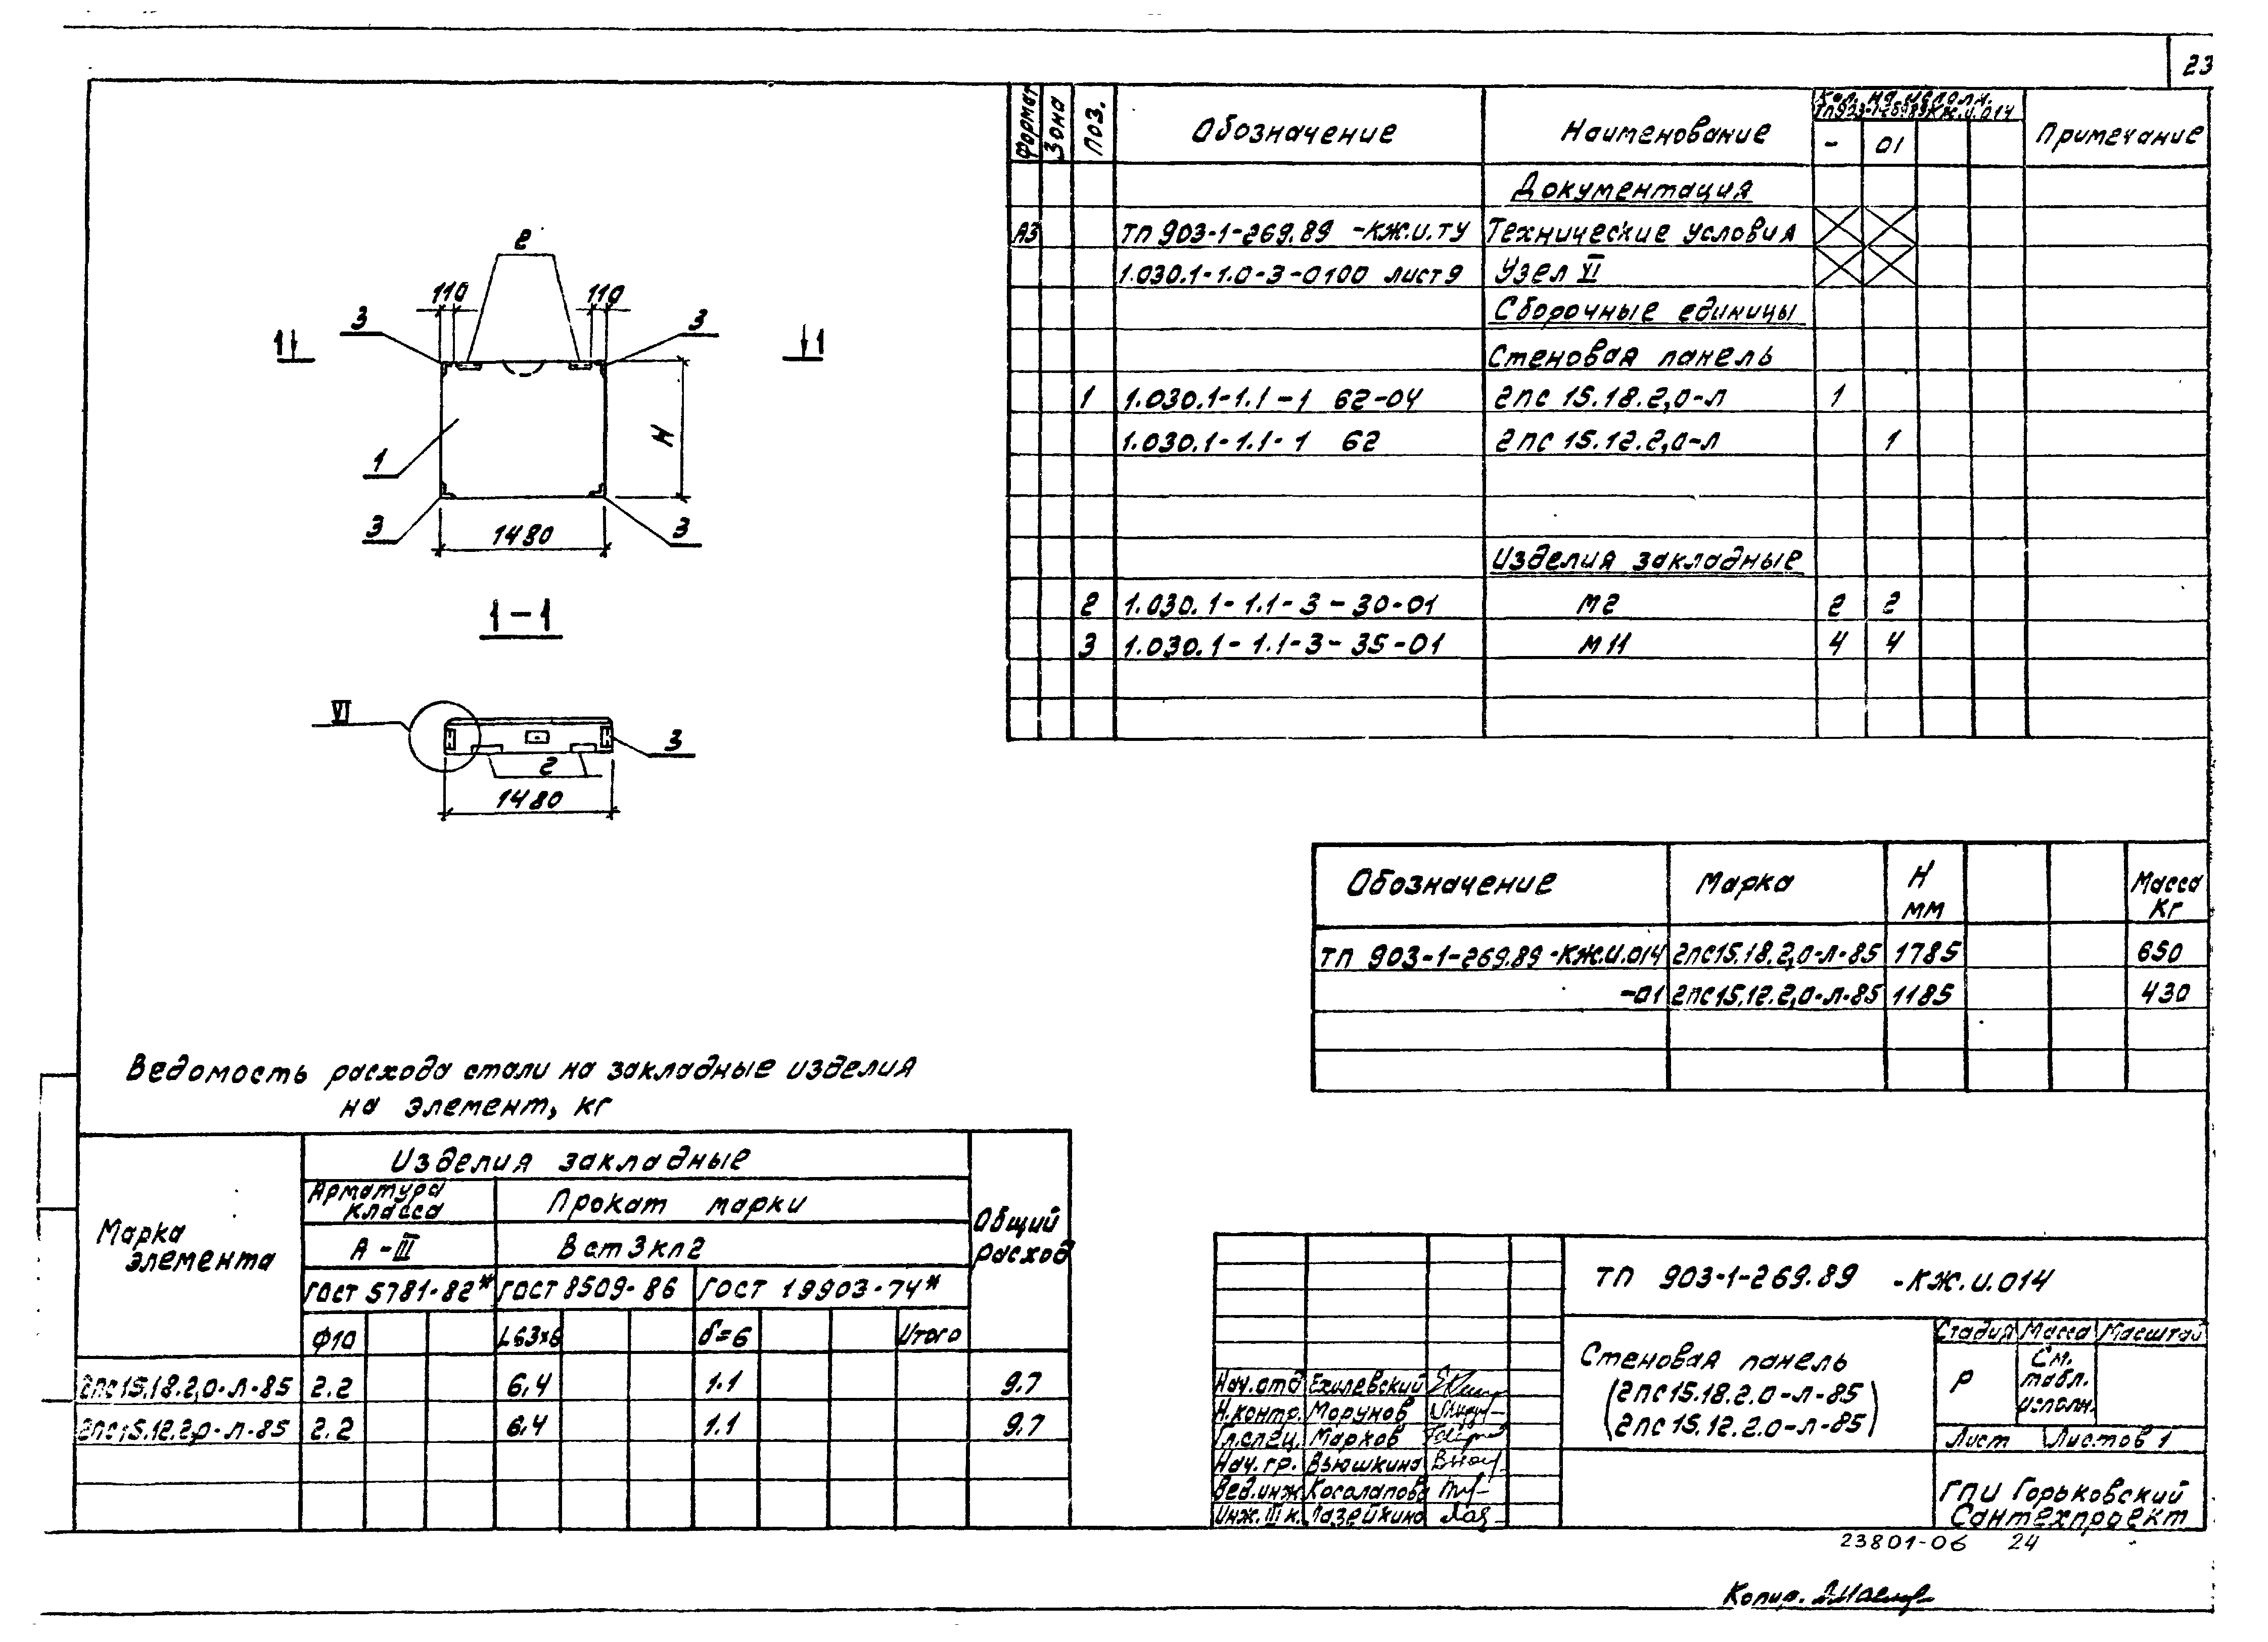 23
2
110
110
3
3
1
1
1
H
3
3
1480
1-1
VI
3
2
1480
Формат
Зона
Поз.
Обозначение
Наименование
Кол. на исполн.
-
01
Примечание
Документация
А3
ТП 903-1-269.89 -КЖ.И.ТУ
Технические условия
1.030.1-1.0-3-0100 лист 9
Узел VI
Сборочные единицы
Стеновая панель
1
1.030.1-1.1-1 62-04
2ПС 15.18.2,0-Л
1
1.030.1-1.1-1 62
2ПС 15.12.2,0-Л
1
Изделия закладные
2
1.030.1-1.1-3-30-01
М2
2
2
3
1.030.1-1.1-3-35-01
М11
4
4
Обозначение
Марка
H
мм
Масса
кг
ТП 903-1-269.89-КЖ.И.014
2ПС15.18.2,0-Л-85
1785
650
-01
2ПС15.12.2,0-Л-85
1185
430
Ведомость расхода стали на закладные изделия
на элемент, кг
Марка
элемента
Изделия закладные
Общий
расход
Арматура
класса
Прокат марки
А-III
Вст3кп2
ГОСТ 5781-82*
ГОСТ 8509-86
ГОСТ 19903-74*
Ф10
L63х6
δ=6
Итого
2ПС15.18.2,0-Л-85
2.2
6,4
1.1
9.7
2ПС15.12.2,0-Л-85
2.2
6,4
1.1
9.7
ТП 903-1-269.89 -КЖ.И.014
Стеновая панель
(2ПС15.18.2.0-Л-85
2ПС15.12.2.0-Л-85)
Стадия
Масса
Масштаб
Р
См.
табл.
исполн.
Лист
Листов 1
ГПИ Горьковский
Сантехпроект
Нач.отд
Ехилевский
Н.контр.
Морунов
Гл.спец.
Марков
Нач.гр.
Вьюшкина
Вед.инж
Косолапова
Инж.III к.
Лазейкина
23801-06 24
Копир.